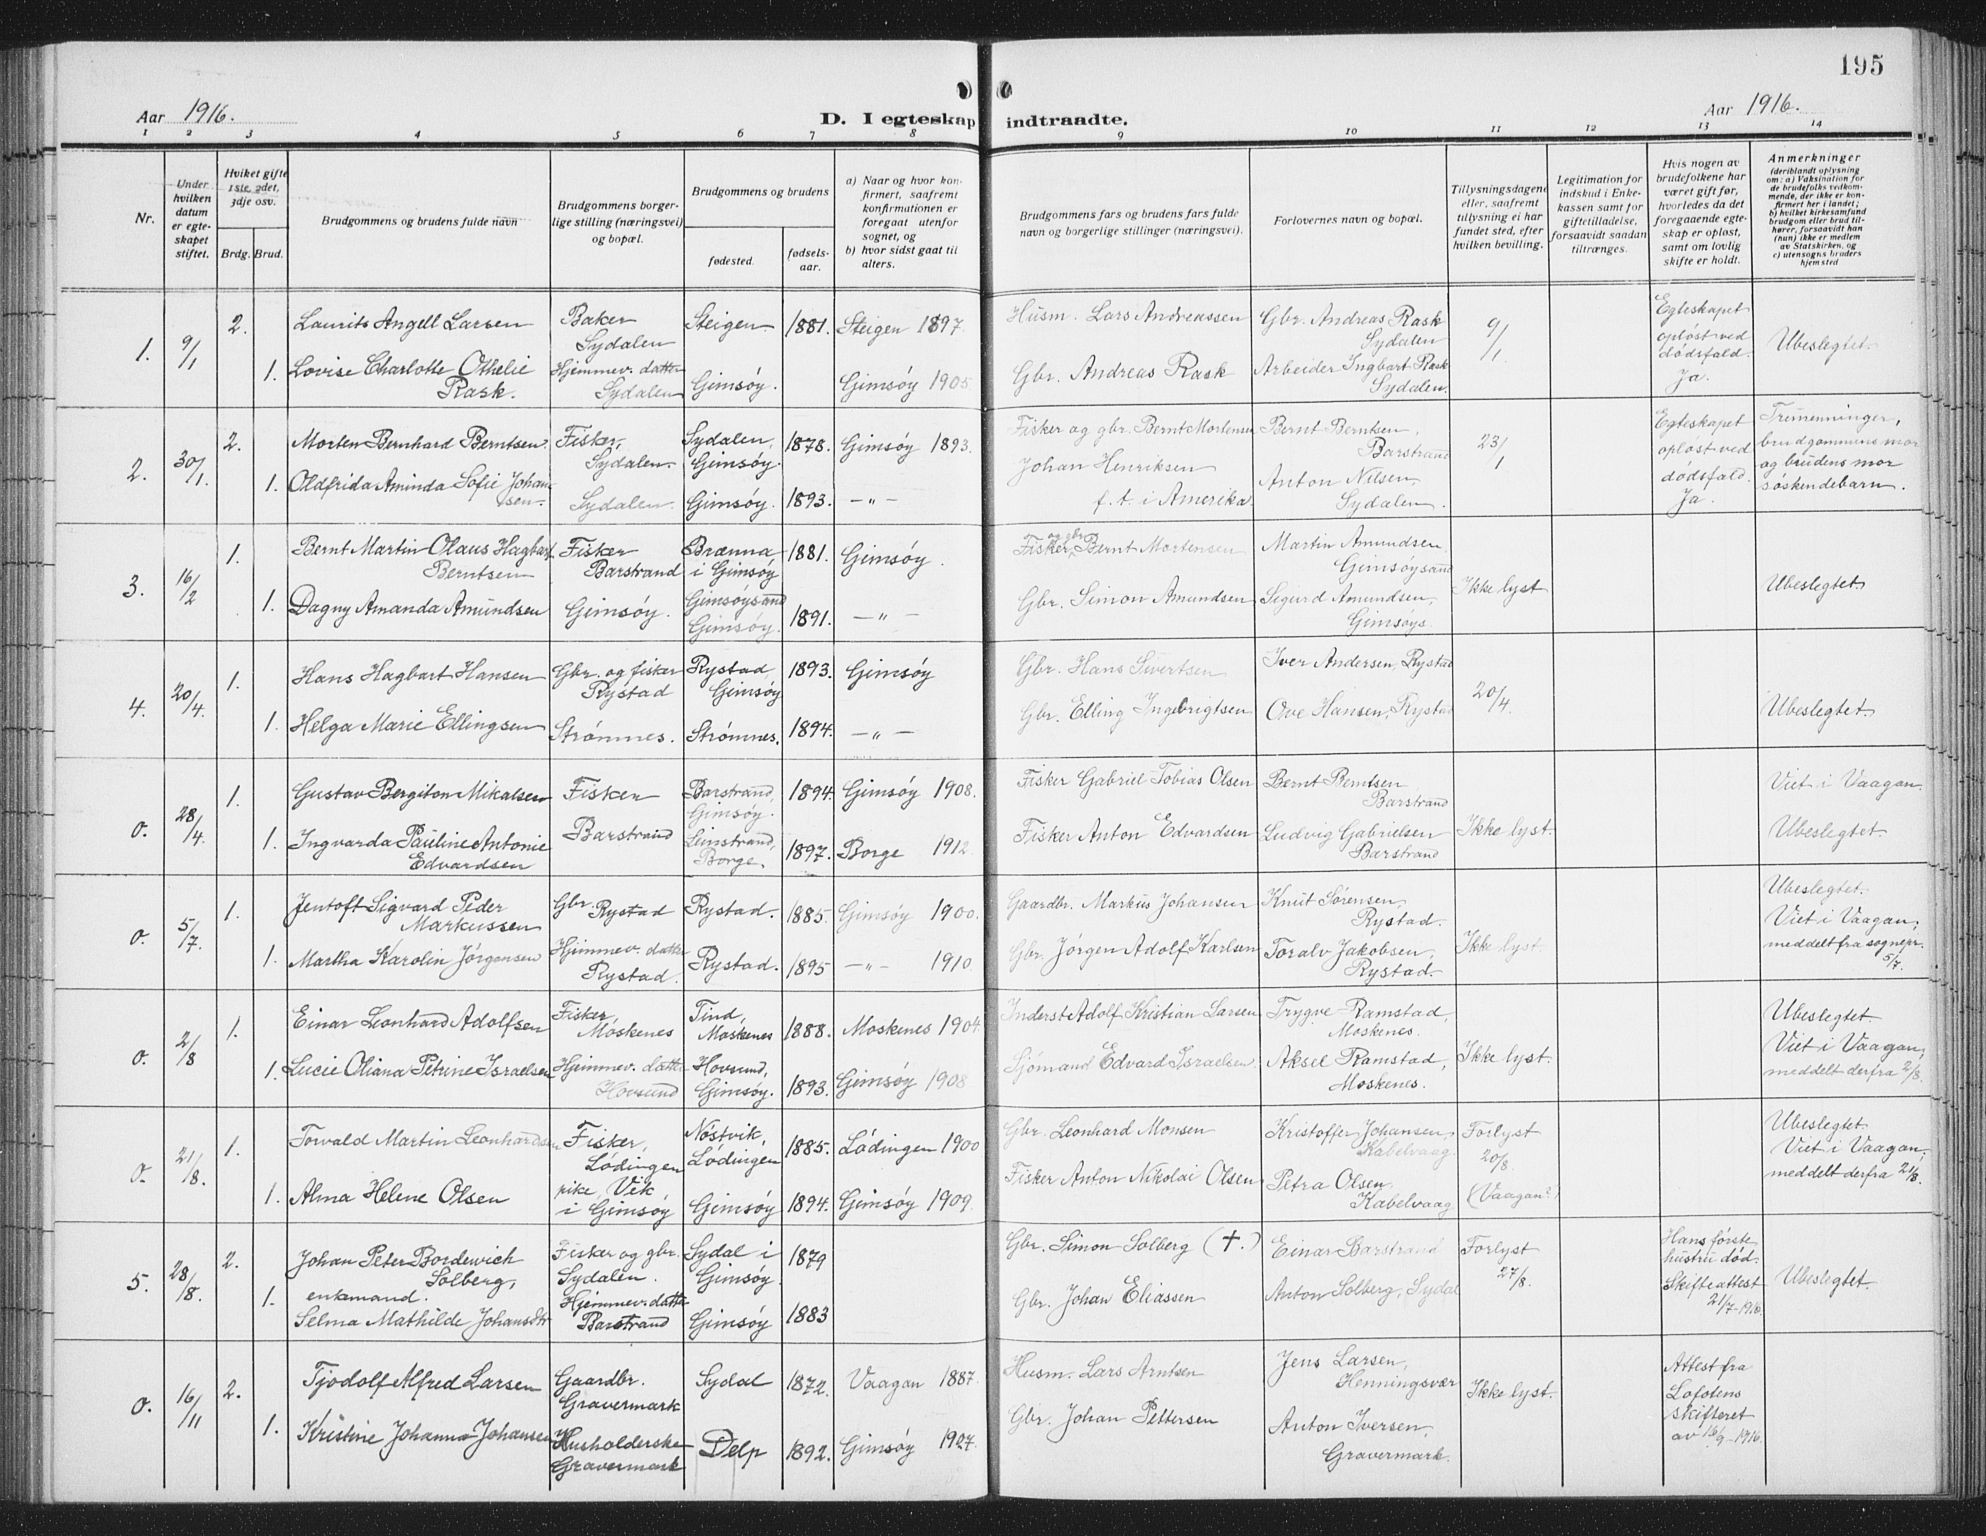 195
Aar 1916.
D. I egteskap indtraadte.
Aar 1916.
1 2 3 4 5 6 7 8 9 10 11 12 13 14
Nr.
Under hvilken datum er egteskapet stiftet.
Hviket gifte 1ste, 2det, 3dje osv.
Brdg. Brud.
Brudgommens og brudens fulde navn
Brudgommens borgerlige stilling (næringsvei) og bopæl.
Brudgommens og brudens
fødested.
fødselsaar.
a) Naar og hvor konfirmert, saafremt konfirmationen er foregaat utenfor sognet, og
b) hvor sidst gaat til alters.
Brudgommens fars og brudens fars fulde navn og borgerlige stillinger (næringsvei).
Forlovernes navn og bopæl.
Tillysningsdagene eller, saafremt tillysning ei har fundet sted, efter hvilken bevilling.
Legitimation for indskud i Enkekassen samt for giftetilladelse, forsaavidt saadan tiltrænges.
Hvis nogen av brudefolkene har været gift før, hvorledes da det foregaaende egteskap er opløst, samt om lovlig skifte er holdt.
Anmerkninger
(deriblandt oplysning om: a) Vaksination for de brudefolks vedkommende, der ikke er konfirmert her i landet; b) hvilket kirkesamfund brudgom eller brud tilhører, forsaavidt han (hun) ikke er medlem av Statskirken, og c) utensogns bruders hjemsted
1. 9/1 2. Laurits Angell Larsen Baker Sydalen Steigen. 1881. Steigen 1897. Husm. Lars Andreassen Gbr. Andreas Rask Sydalen 9/1 Egteskapet opløst ved dødsfald. Ja. Ubeslegtet.
1. Lovise Charlotte Othelie Rask. Hjemmev. datter Sydalen Gimsöy. Gimsöy 1905 Gbr. Andreas Rask Arbeider Ingbart Rask Sydalen.
2. 30/1. 2. Morten Bernhard Berntsen Fisker, Sydalen. Sydalen, Gimsöy. 1878. Gimsöy 1893. Fisker og gbr. Bernt Mortensen Bernt Berntsen, Barstrand 23/1 Egteskapet opløst ved dødsfald. Ja. Tremenninger, brudgommens mor og brudens mor søskendebarn.
1. Oldfrida Aminda Sofie Johansen. Sydalen. Gimsöy. 1893. —"— Johan Henriksen f. t. i Amerika. Anton Nilsen, Sydalen.
3. 16/2 1. Bernt Martin Olaus Hagbart Berntsen Fisker Barstrand Brænna i Gimsöy 1881. Gimsöy. Fisker og gbr. Bernt Mortensen Martin Amundsen, Gimsöysand Ikke lyst Ubeslegtet.
1. Dagny Amanda Amundsen Gimsöy. Gimsöysand Gimsöy. 1891. —"— Gbr. Simon Amundsen Sigurd Amundsen, Gimsöys.
4. 20/4. 1. Hans Hagbart Hansen Gbr. og fisker Rystad Rystad, Gimsöy 1893. Gimsöy Gbr. Hans Sivertsen Iver Andersen, Rystad 20/4. Ubeslegtet.
1. Helga Marie Ellingsen Strömmes. Strömnes. 1894. —"— Gbr. Elling Ingebrigtsen Ove Hansen, Rystad
o. 28/4. 1. Gustav Bergiton Mikalsen Fisker Barstrand, Gimsöy. 1894. Gimsöy 1908. Fisker Gabriel Tobias Olsen Bernt Berntsen Barstrand Viet i Vaagan.
1. Ingvarda Pauline Antonie Edvardsen Barstrand Leinstrand, Borge. 1897. Borge 1912. Fisker Anton Edvardsen Ludvig Gabrielsen Barstrand Ikke lyst. Ubeslegtet.
o. 5/7. 1. Jentoft Sigvard Peder Markussen Gbr. Rystad Rystad. 1885. Gimsöy 1900. Gaardbr. Markus Johansen Knut Sörensen, Rystad. Ubeslegtet. Viet i Vaagan, meddelt fra sognepr. 5/7.
1. Martha Karolin Jörgensen Hjemmev. datter Rystad. Rystad. 1895 —"— 1910. Gbr. Jörgen Adolf Karlsen Toralv Jakobsen, Rystad. Ikke lyst.
o. 2/8 1. Einar Leonhard Adolfsen Fisker, Moskenes Tind, Moskenes 1888. Moskenes 1904. Inderst Adolf Kristian Larsen Trygve Ramstad, Moskenes. Ubeslegtet Viet i Vaagan, meddelt derfra 2/8.
1. Lucie Oliana Petrine Israelsen Hjemmev. datter Hovsund Hovsund, Gimsöy. 1893. Gimsöy 1908 Sjömand Edvard Israelsen Aksel Ramstad, Moskenes. Ikke lyst.
o. 21/8. 1. Torvald Martin Leonhardsen Fisker, Lödingen Nöstvik, Lödingen 1885. Lödingen 1900 Gbr. Leonhard Monsen Kristoffer Johansen, Kabelvaag. Forlyst 20/8. (Vaagan?) Ubeslegtet. Viet i Vaagan, meddelt derfra 21/8.
1. Alma Helene Olsen pike, Vik i Gimsöy Gimsöy 1894. Gimsöy 1909. Fisker Anton Nikolai Olsen Petra Olsen, Kabelvaag
5. 28/8. 2. Johan Peter Bordewich Solberg, enkemand. Fisker og gbr. Sydalen. Sydal i Gimsöy. 1879 Gbr. Simon Solberg (✝.) Einar Barstrand Forlyst 27/8. Hans første hustru död. Skifteattest 21/7-1916. Ubeslegtet.
1. Selma Mathilde Johansdtr Hjemmev. datter Barstrand Gimsöy 1883 Gbr. Johan Eliassen Anton Solberg, Sydal
o. 16/11 2. Tjodolf Alfred Larsen Gaardbr. Gravermark Sydal 1872. Vaagan 1887. Husm. Lars Arntsen Jens Larsen, Henningsvær Ikke lyst. Attest fra Lofotens skifteret av 16/9-1916.
1. Kristine Johanna Johansen Husholderske Gravermark Delp 1892. Gimsöy 1927. Gbr. Johan Pettersen Anton Iversen, Gravermark.